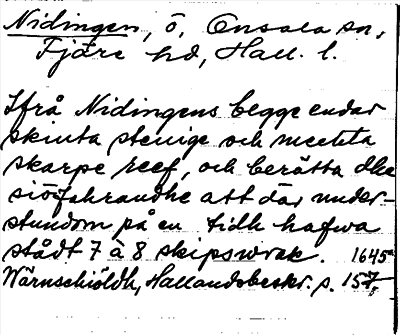 Nidingen, ö, Onsala sn,
Fjäre hd, Hall. l.
Ifrå Nidingens begge endar
skiuta stenige och mechta
skarpe reef, och berätta dhe
siöfahrandhe att där under-
stundom på en tidh hafwa
stådt 7 à 8 skipswrak. 1645
Wärnschiöldh, Hallandsbeskr. s. 157.